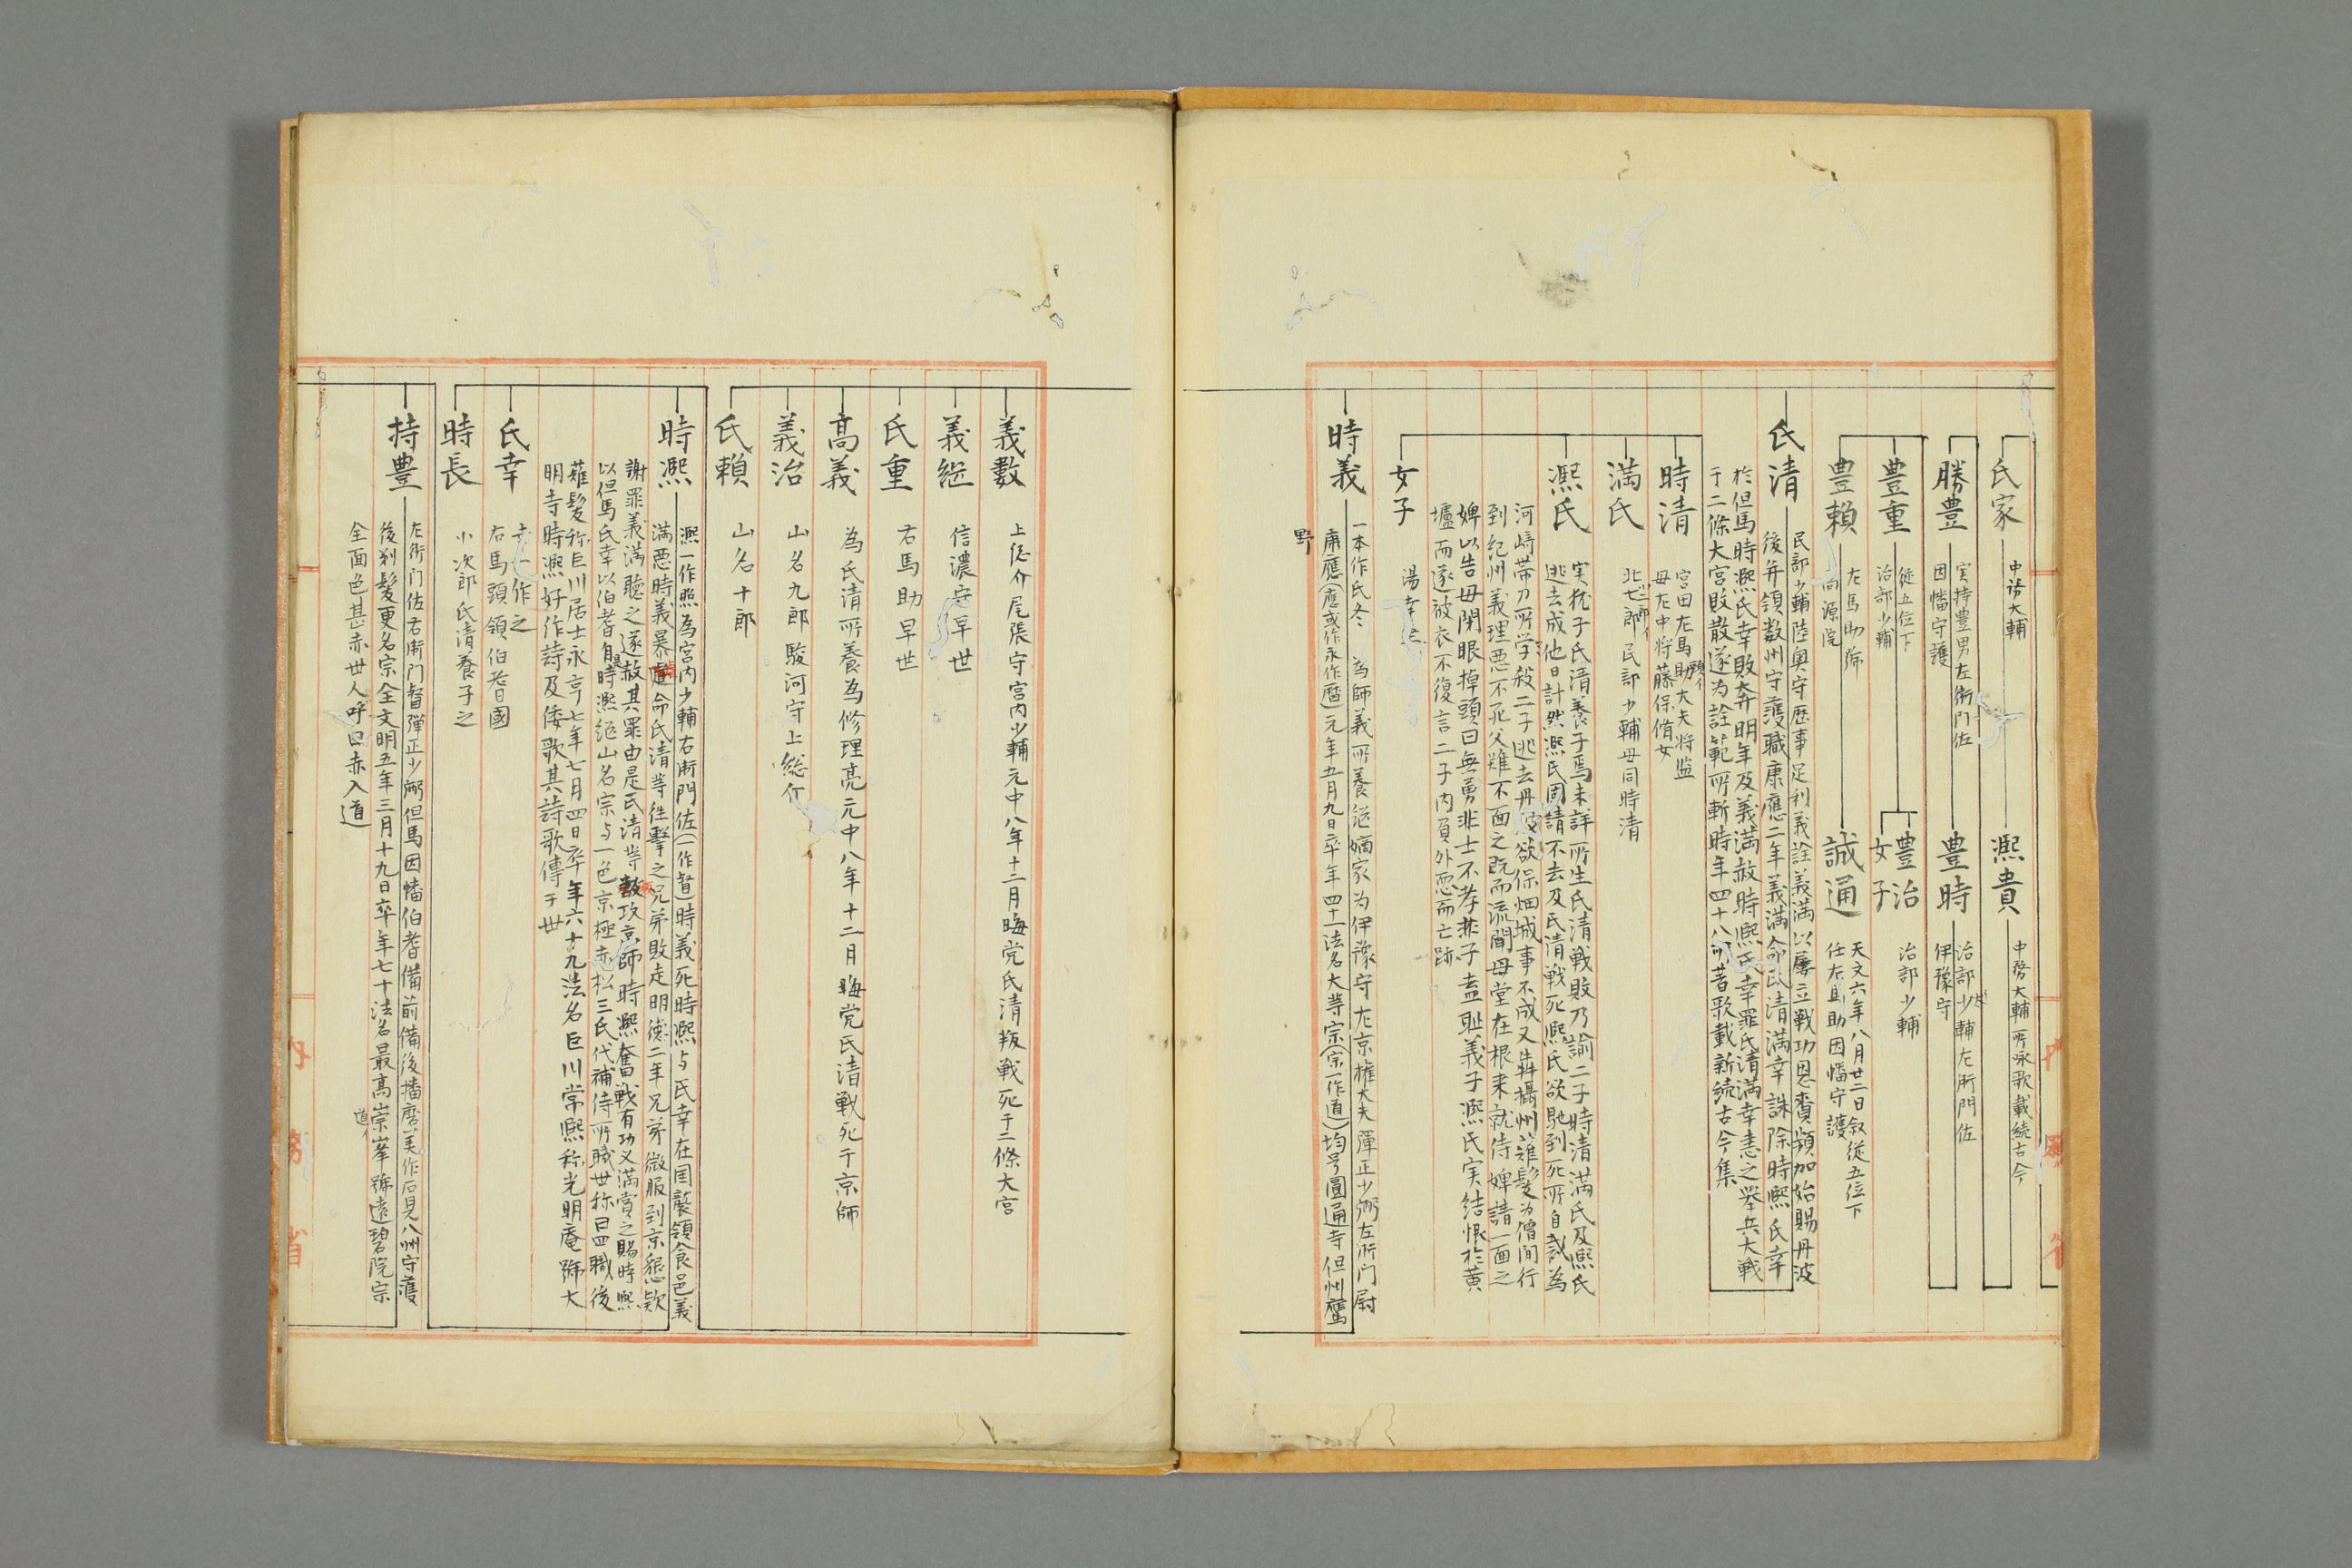 氏家
中務大輔
凞貴
中務大輔所詠歌載続古今
勝豊
実持豊男左衛門佐
因幡守護
豊時
治部少輔左衛門佐
伊豫守
豊重
従五位下
治部少輔
豊治
治部少輔
女子
豊頼
左馬助号
誠通
天文六年八月廿二日叙従五位下
任左馬助因幡守護
氏清
民部少輔陸奥守歴事足利義詮義満以屡立戦功恩賚頻加始賜丹波
後并領数州守護職康應二年義満命氏清満幸誅除時熈氏幸
於但馬時熈氏幸敗奔明年及義満赦時熈氏幸罪氏清満幸恚之挙兵大戦
于二條大宮敗散遂为詮範所斬時年四十八所著歌載新続古今集
時清
宮田左馬助大夫将監
母左中将藤保脩女
満氏
民部少輔母同時清
凞氏
実猶子氏清養子焉未詳所生氏清戦敗乃諭二子時清満氏及熈氏
逃去成他日計然凞氏固請不去及氏清戦死熈氏欲馳到死所自裁為
河﨑帯刀所学殺二子逃去丹波欲保畑城事不成又奔攝州薙髪为僧间行
到紀州義理悪不死父難不面之既而流聞母堂在根来就侍婢請一面之
婢以告母閉眼掉頭曰無勇非士不孝非子盍耻義子凞氏実结恨於黄
壚而遂被衣不復言二子内負外恧而亡跡
女子
湯幸
時義
一本作氏冬 為師義所養継嫡家为伊豫守左京権大夫弾正少弼左衛门尉
康應(應或作永作暦)元年五月九日卒年四十一法名大等宗(宗一作道)均号圓通寺但州鷹
野
義數
上総介尾張守宮内少輔元中八年十二月晦党氏清叛戦死于二條大宮
義継
信濃守早世
氏重
右馬助早世
高義
為氏清所養為修理亮元中八年十二月晦党氏清戦死于京師
義治
山名九郎駿河守上総介
氏頼
山名十郎
時凞
凞一作熈為宮内少輔右衛門佐(一作督)時義死時熈与氏幸在国襲領食邑義
満悪時義暴命氏清等徃撃之兄弟敗走明徳二年兄弟微服到京懇欵
謝罪義満聴之遂赦其罪由是氏清等攻京師時凞奮戦有功义満賞之賜時熈
以但馬氏幸以伯耆自是時凞継山名宗与一色京極赤松三氏代補侍所職世称曰四職後
薙髪称巨川居士永亨七年七月四日卒年六十九法名巨川常熈称光明庵号大
明寺時凞好作詩及倭歌其詩歌傳于世
氏幸
幸一作之
右馬頭領伯耆國
時長
小次郎氏清養子之
持豊
左衛门佐右衛门督弾正少弼但馬因幡伯耆備前備後播磨美作石見八州守護
後剃髪更名宗全文明五年三月十九日卒年七十法名最高崇峯号遠碧院宗
全面色甚赤世人呼曰赤入道
内務省